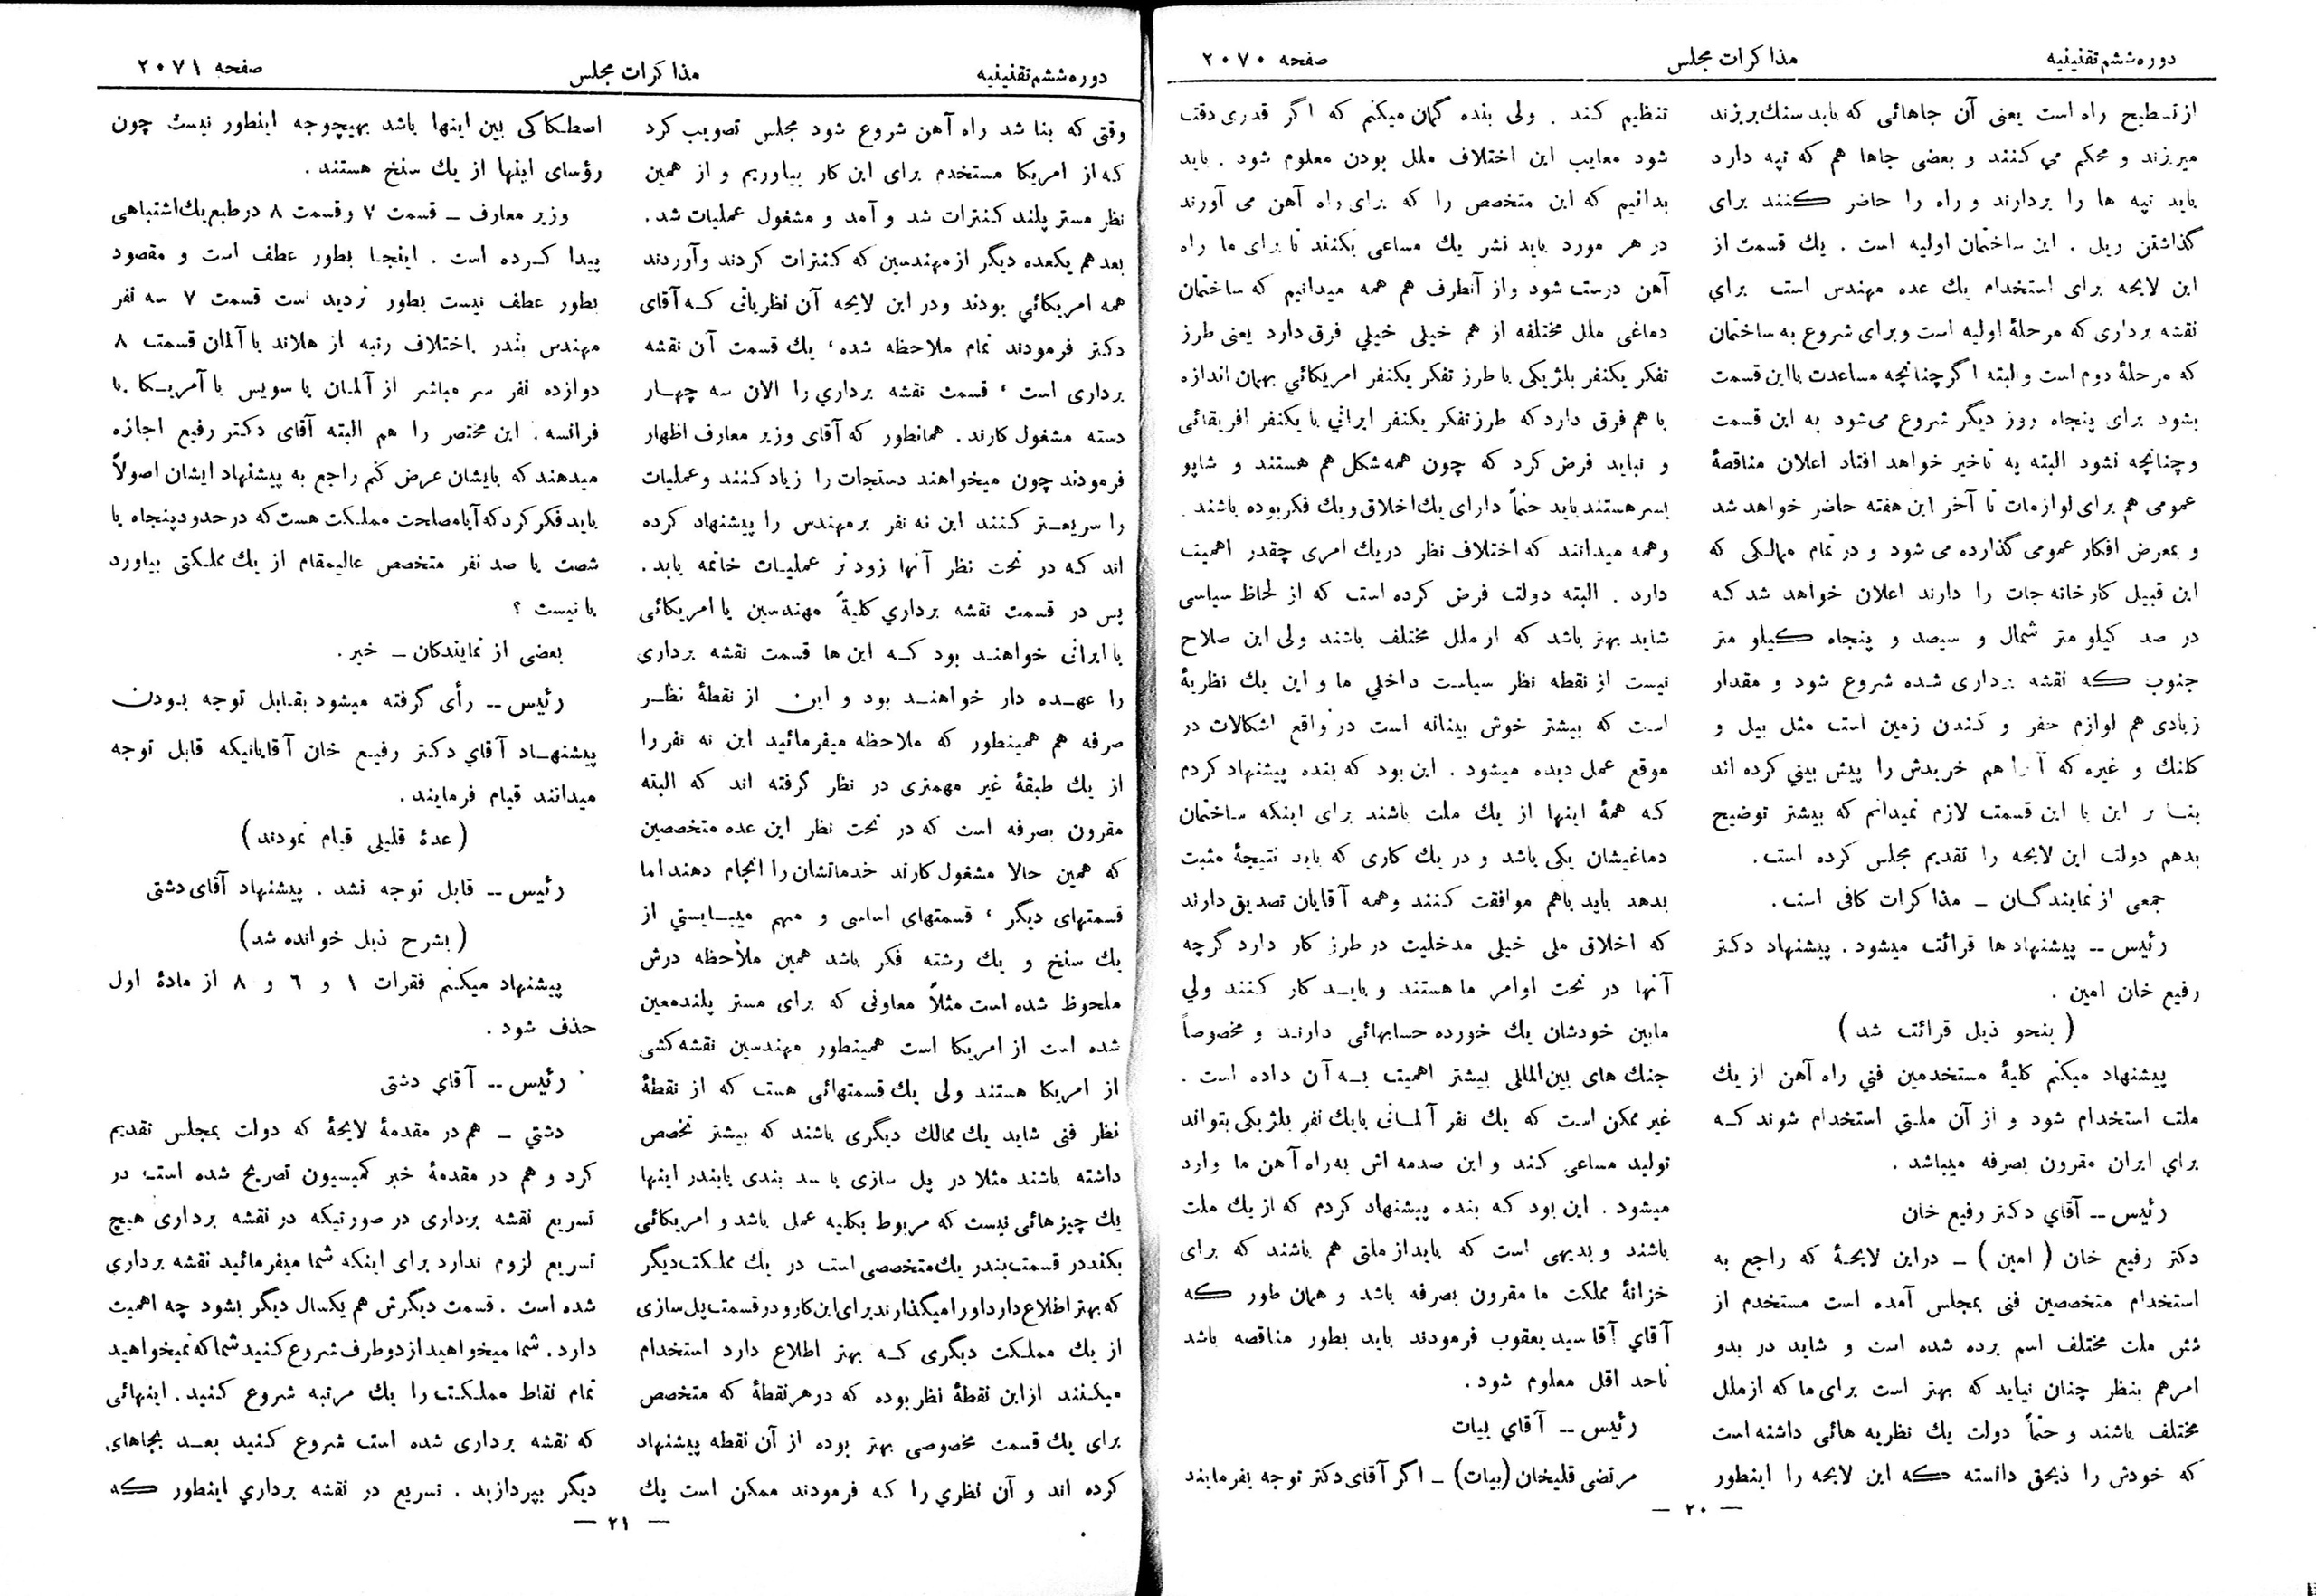 دوره ششم تقنینیه
مذاکرات مجلس
صفحه ۲۰۷۰
از تسطیح راه است یعنی آن جاهائی که باید سنك بریزند
میریزند و محکم می کنند و بعضی جاها هم که تپه دارد
باید تپه ها را بردارند و راه را حاضر کنند برای
گذاشتن ریل . این ساختمان اولیه است . یك قسمت از
این لایحه برای استخدام یك عده مهندس است برای
نقشه برداری که مرحلهٔ اولیه است و برای شروع به ساختمان
که مرحلهٔ دوم است والبته اگر چنانچه مساعدت با این قسمت
بشود برای پنجاه روز دیگر شروع می‌شود به این قسمت
و چنانچه نشود البته به تاخیر خواهد افتاد اعلان مناقصهٔ
عمومی هم برای لوازمات تا آخر این هفته حاضر خواهد شد
و بمعرض افکار عمومی گذارده می شود و در تمام ممالکی که
این قبیل کارخانه جات را دارند اعلان خواهد شد که
در صد کیلو متر شمال و سیصد و پنجاه کیلو متر
جنوب که نقشه برداری شده شروع شود و مقدار
زیادی هم لوازم حفر و کندن زمین است مثل بیل و
کلنك و غیره که آنرا هم خریدش را پیش بیني کرده اند
بنا بر این با این قسمت لازم نمیدانم که بیشتر توضیح
بدهم دولت این لایحه را تقدیم مجلس کرده است.
جمعی از نمایندگان ـ مذاکرات کافی است.
رئیس -- پیشنهاد ها قرائت میشود. پیشنهاد دکتر
رفیع خان امین .
( بنحو ذیل قرائت شد )
پیشنهاد میکنم کلیهٔ مستخدمین فني راه آهن از یك
ملت استخدام شود و از آن ملتي استخدام شوند که
براي ایران مقرون بصرفه میباشد .
رئیس -- آقاي دکتر رفیع خان
دکتر رفیع خان ( امین ) ـ دراین لایحهٔ که راجع به
استخدام متخصصین فنی بمجلس آمده است مستخدم از
شش ملت مختلف اسم برده شده است و شاید در بدو
امرهم بنظر چنان نیاید که بهتر است برای ما که از ملل
مختلف باشند و حتماً دولت یك نظریه هائی داشته است
که خودش را ذیحق دانسته که این لایحه را اینطور
تنظیم کند . ولی بنده گمان میکنم که اگر قدری دقت
شود معایب این اختلاف ملل بودن معلوم شود . باید
بدانیم که این متخصص را که برای راه آهن می آورند
در هر مورد باید نشر یك مساعی بکنند تا برای ما راه
آهن درست شود واز آنطرف هم همه میدانیم که ساختمان
دماغی ملل مختلفه از هم خیلی خیلي فرق دارد یعنی طرز
تفکر یکنفر بلژیکی با طرز تفکر یکنفر امریکائي بهمان اندازه
با هم فرق دارد که طرز تفکر یکنفر ایراني با یکنفر افریقائی
و نباید فرض کرد که چون همه شکل هم هستند و شاپو
بسر هستند باید حتماً دارای یك اخلاق و یك فکر بوده باشند .
وهمه میدانند که اختلاف نظر در یك امری چقدر اهمیت
دارد . البته دولت فرض کرده است که از لحاظ سیاسی
شاید بهتر باشد که از ملل مختلف باشند ولی این صلاح
نیست از نقطه نظر سیاست داخلي ما و این یك نظریهٔ
است که بیشتر خوش بینانه است در واقع اشکالات در
موقع عمل دیده میشود . این بود که بنده پیشنهاد کردم
که همهٔ اینها از یك ملت باشند برای اینکه ساختمان
دماغیشان یکی باشد و در یك کاری که باید نتیجهٔ مثبت
بدهد باید باهم موافقت کنند وهمه آقایان تصدیق دارند
که اخلاق ملی خیلی مدخلیت در طرز کار دارد گرچه
آنها در تحت اوامر ما هستند و باید کار کنند ولي
مابین خودشان یك خورده حسابهائی دارند و مخصوصاً
جنك های بین‌المللی بیشتر اهمیت به آن داده است .
غیر ممکن است که یك نفر آلمانی بایك نفر بلژیکی بتواند
تولید مساعی کند و این صدمه اش به راه آهن ما وارد
میشود . این بود که بنده پیشنهاد کردم که از یك ملت
باشند و بدیهی است که باید از ملتی هم باشند که برای
خزانهٔ مملکت ما مقرون بصرفه باشد و همان طور که
آقاي آقا سید یعقوب فرمودند باید بطور مناقصه باشد
تاحد اقل معلوم شود.
رئیس -- آقاي بیات
مرتضی قلیخان (بیات) ـ اگر آقای دکتر توجه بفرمایند
— ۲۰ —
دوره ششم تقنینیه
مذاکرات مجلس
صفحه ۲۰۷۱
وقتی که بنا شد راه آهن شروع شود مجلس تصویب کرد
که از امریکا مستخدم برای این کار بیاوریم و از همین
نظر مستر پلند کنترات شد و آمد و مشغول عملیات شد.
بعد هم یکعده دیگر از مهندسین که کنترات کردند وآوردند
همه امریکائي بودند ودر این لایحه آن نظریاتی که آقای
دکتر فرمودند تمام ملاحظه شده، یك قسمت آن نقشه
برداری است ، قسمت نقشه برداري را الان سه چهار
دسته مشغول کارند. همانطور که آقای وزیر معارف اظهار
فرمودند چون میخواهند دستجات را زیاد کنند و عملیات
را سریعتر کنند این نه نفر بر مهندس را پیشنهاد کرده
اند که در تحت نظر آنها زود تر عملیات خاتمه یابد.
پس در قسمت نقشه برداري کلیهً مهندسین یا امریکائی
یا ایرانی خواهند بود که این ها قسمت نقشه برداری
را عهده دار خواهند بود و این از نقطهٔ نظر
صرفه هم همینطور که ملاحظه میفرمائید این نه نفر را
از یك طبقهٔ غیر مهمتری در نظر گرفته اند که البته
مقرون بصرفه است که در تحت نظر این عده متخصصین
که همین حالا مشغول کارند خدماتشان را انجام دهند اما
قسمتهای دیگر ، قسمتهای اساسی و مهم میبایستي از
یك سنخ و یك رشته فکر باشد همین ملاحظه درش
ملحوظ شده است مثلاً معاونی که برای مستر پلند معین
شده است از امریکا است همینطور مهندسین نقشه کشی
از امریکا هستند ولی یك قسمتهائی هست که از نقطهٔ
نظر فنی شاید یك ممالك دیگری باشند که بیشتر تخصص
داشته باشند مثلا در پل سازی یا سد بندی یا بندر اینها
یك چیز هائی نیست که مربوط بکلیه عمل باشد و امریکائی
بکند در قسمت بندر یك متخصصی است در یك مملکت دیگر
که بهتر اطلاع دارد او را میگذارند برای این کار و در قسمت پل سازی
از یك مملکت دیگری که بهتر اطلاع دارد استخدام
میکنند از این نقطهٔ نظر بوده که در هر نقطهٔ که متخصص
برای یك قسمت مخصوصی بهتر بوده از آن نقطه پیشنهاد
کرده اند و آن نظري را که فرمودند ممکن است یك
اصطکاکی بین اینها باشد بهیچوجه اینطور نیست چون
رؤسای اینها از یك سنخ هستند .
وزیر معارف ـ قسمت ۷ و قسمت ۸ در طبع یك اشتباهی
پیدا کرده است . اینجا بطور عطف است و مقصود
بطور عطف نیست بطور تردید است قسمت ۷ سه نفر
مهندس بندر باختلاف رتبه از هلاند یا آلمان قسمت ۸
دوازده نفر سر مباشر از آلمان یا سویس یا آمریکا یا
فرانسه. این مختصر را هم البته آقای دکتر رفیع اجازه
میدهند که بایشان عرض کنم راجع به پیشنهاد ایشان اصولاً
باید فکر کرد که آیا مصلحت مملکت هست که در حدود پنجاه یا
شصت یا صد نفر متخصص عالیمقام از یك مملکتی بیاورد
یا نیست ؟
بعضی از نمایندکان ـ خیر .
رئیس -- رأی گرفته میشود بقابل توجه بودن
پیشنهاد آقاي دکتر رفیع خان آقایانیکه قابل توجه
میدانند قیام فرمایند.
(عدهٔ قلیلی قیام نمودند)
رئیس -- قابل توجه نشد . پیشنهاد آقای دشتی
(بشرح ذیل خوانده شد)
پیشنهاد میکنم فقرات ۱ و ٦ و ۸ از مادهٔ اول
حذف شود .
رئیس -- آقاي دشتی
دشتي ـ هم در مقدمهٔ لایحهٔ که دولت بمجلس تقدیم
کرد و هم در مقدمهٔ خبر کمیسیون تصریح شده است در
تسریع نقشه برداری در صورتیکه در نقشه برداری هیچ
تسریع لزوم ندارد برای اینکه شما میفرمائید نقشه برداری
شده است . قسمت دیگرش هم یکسال دیگر بشود چه اهمیت
دارد. شما میخواهید از دو طرف شروع کنید شما که نمیخواهید
تمام نقاط مملکت را یك مرتبه شروع کنید. اینهائی
که نقشه برداری شده است شروع کنید بعد بجاهای
دیگر بپردازید . تسریع در نقشه برداري اینطور که
— ۲۱ —